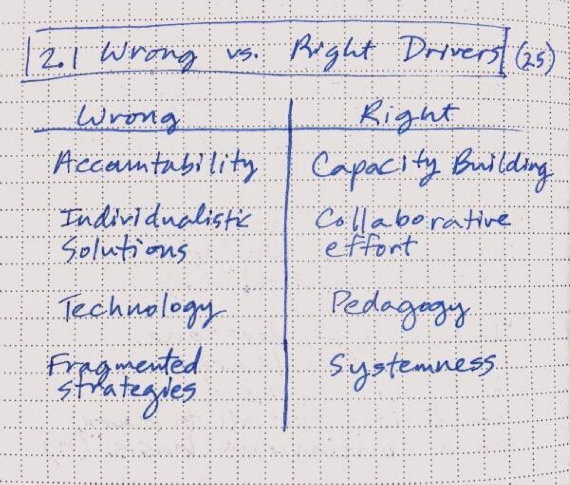 2.1 Wrong vs. Right Drivers (25)
Wrong Right
Accountability Capacity Building
Individualistic Collaborative
Solutions effort
Technology Pedagogy
Fragmented Systemness
strategies